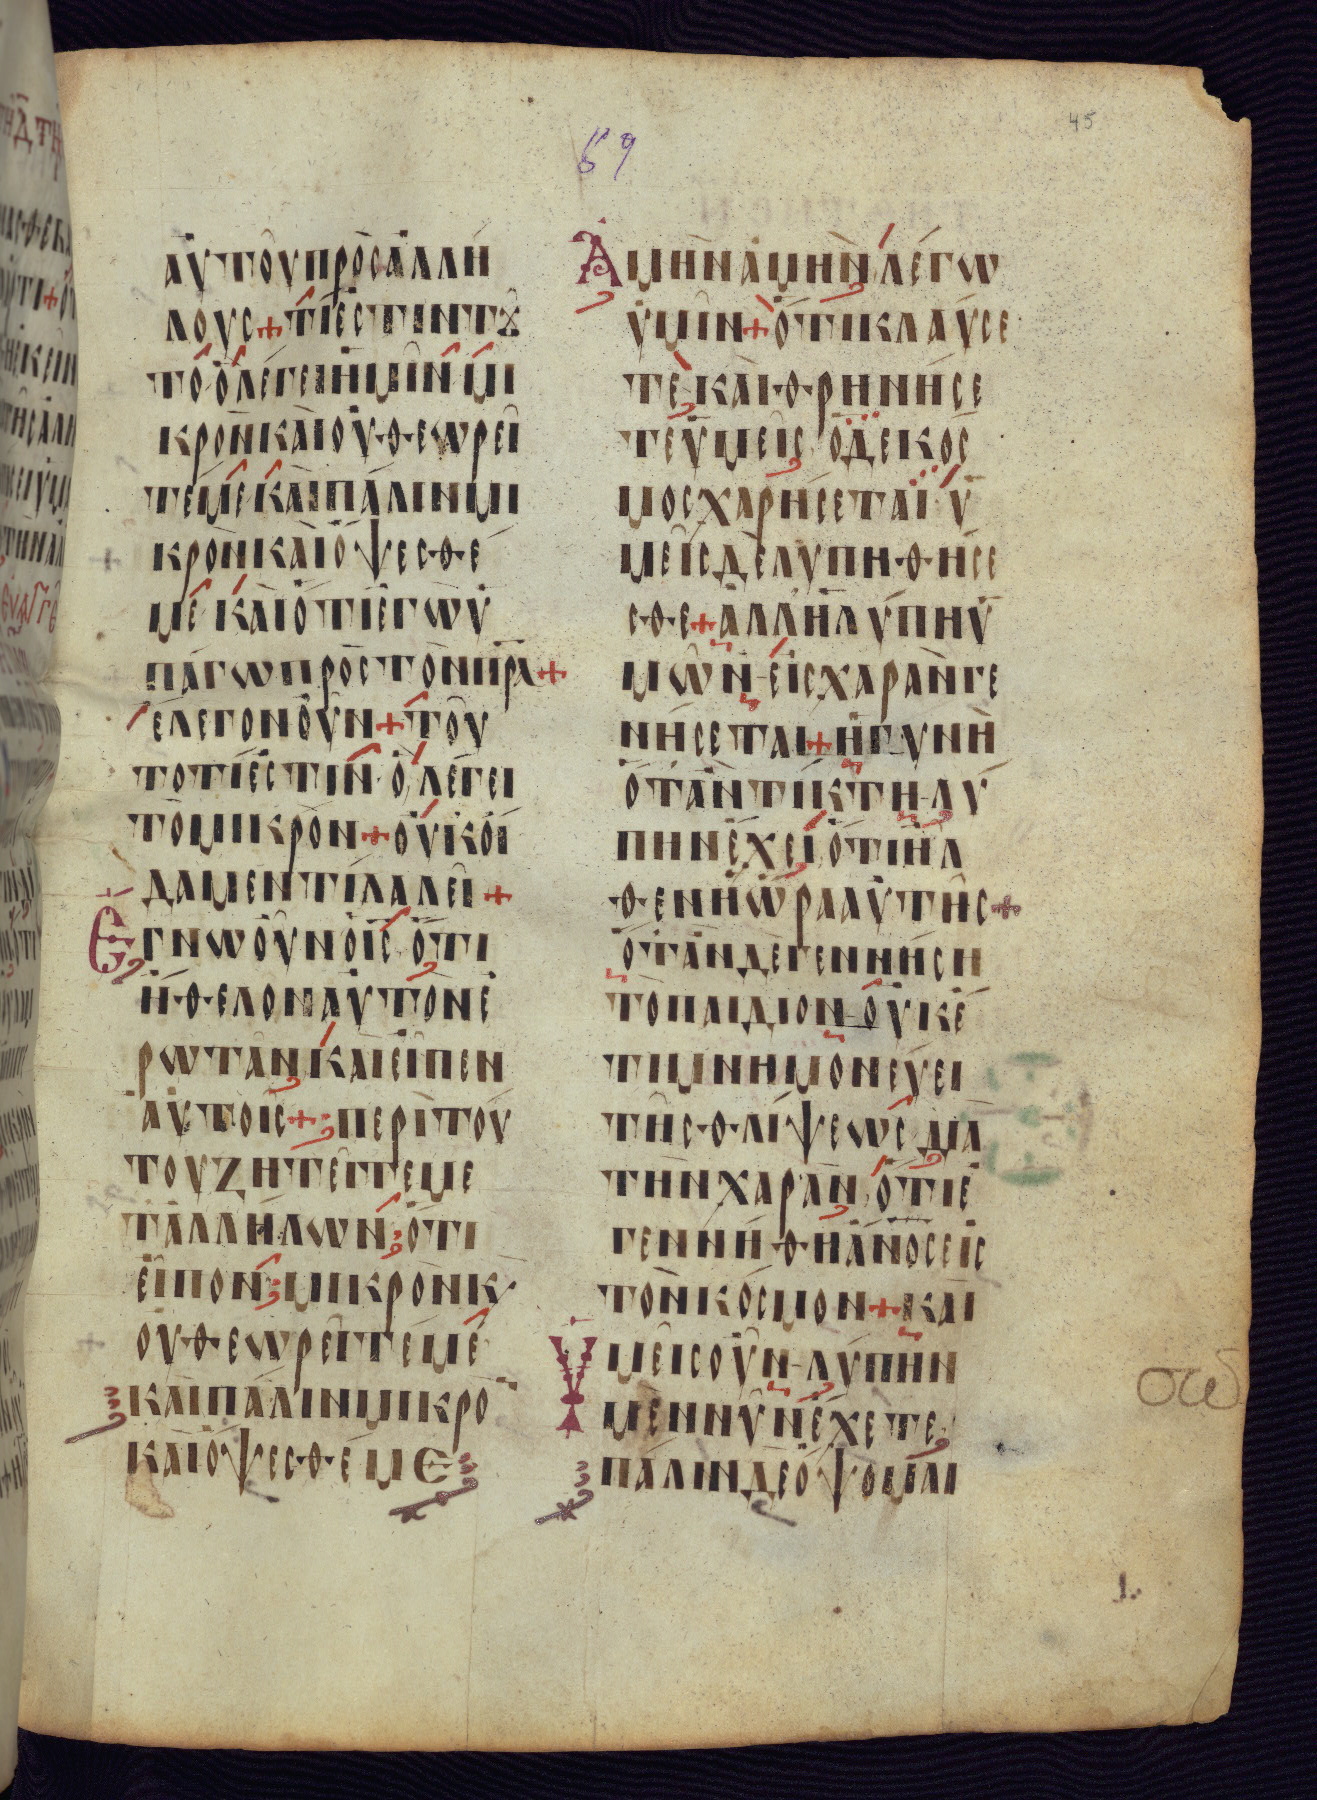 45
69
ἀυτοῦ πρὸς ἀλλή
λους + τί ἐστιν τȣ
το ὃ λέγει ἡμῖν μι
κρὸν καὶ οὐ θεωρεῖ
τε με καὶ πάλιν μι
κρὸν καὶ ὄψεσθέ
με καὶ ὅτι ἐγὼ ὑ
πάγω πρὸς τὸν πρα +
ἔλεγον οὖν + τοῦ
το τί ἐστιν ὃ λέγει
τὸ μικρόν + οὐκ οἴ
δαμεν τί λαλεῖ +
Ἔγνω οὖν ὁ ις ὅτι
ἤθελον αὐτὸν ἐ
ρωτᾶν καὶ εἶπεν
αὐτοῖς + περὶ τού
του ζητεῖτε με
τ ἀλλήλων ὅτι
εἶπον μικρὸν κ
οὐ θεωρεῖτέ με
καὶ πάλιν μικρο
καὶ ὄψεσθέ με
Ἀμὴν ἀμὴν λέγω
ὑμῖν + ὅτι κλαύσε
τε καὶ θρηνήσε
τε ὑμεῖς ὁ δε κόσ
μος χαρήσεται ὑ
μεῖς δὲ λυπηθήσε
σθε + ἀλλ ἡ λύπη ὑ
μῶν εἰς χαρὰν γε
νήσεται + ἡ γυνὴ
ὅταν τίκτη λύ
πην ἔχει ὅτι ἦλ
θεν ἡ ὥρα αὐτῆς +
ὅταν δε γεννήση
τὸ παιδίον οὐκέ
τι μνημονεύει
τῆς θλίψεως διὰ
τὴν χαρὰν ὅτι ἐ
γεννήθη ἀνος εἰς
τὸν κόσμον + καὶ
Ὑμεῖς οὖν λύπην
μὲν νῦν ἔχετε
πάλιν δε ὄψομαι
σωδ